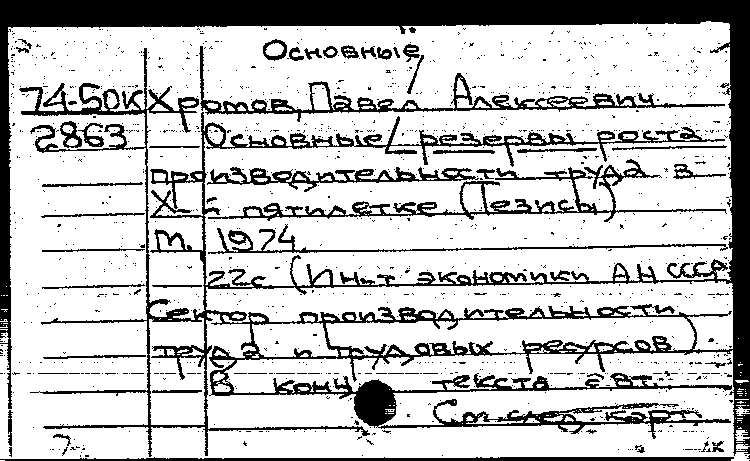 Основные
74-50к Хромов, Павел Алексеевич
2863 Основные резервы роста
производительности труда в
X-й пятилетке. (Тезисы)
М., 1974.
22с. (Ин-т экономики АН СССР
Сектор производительности
труда и трудовых ресурсов).
В конц текста авт.
См. след. карт.